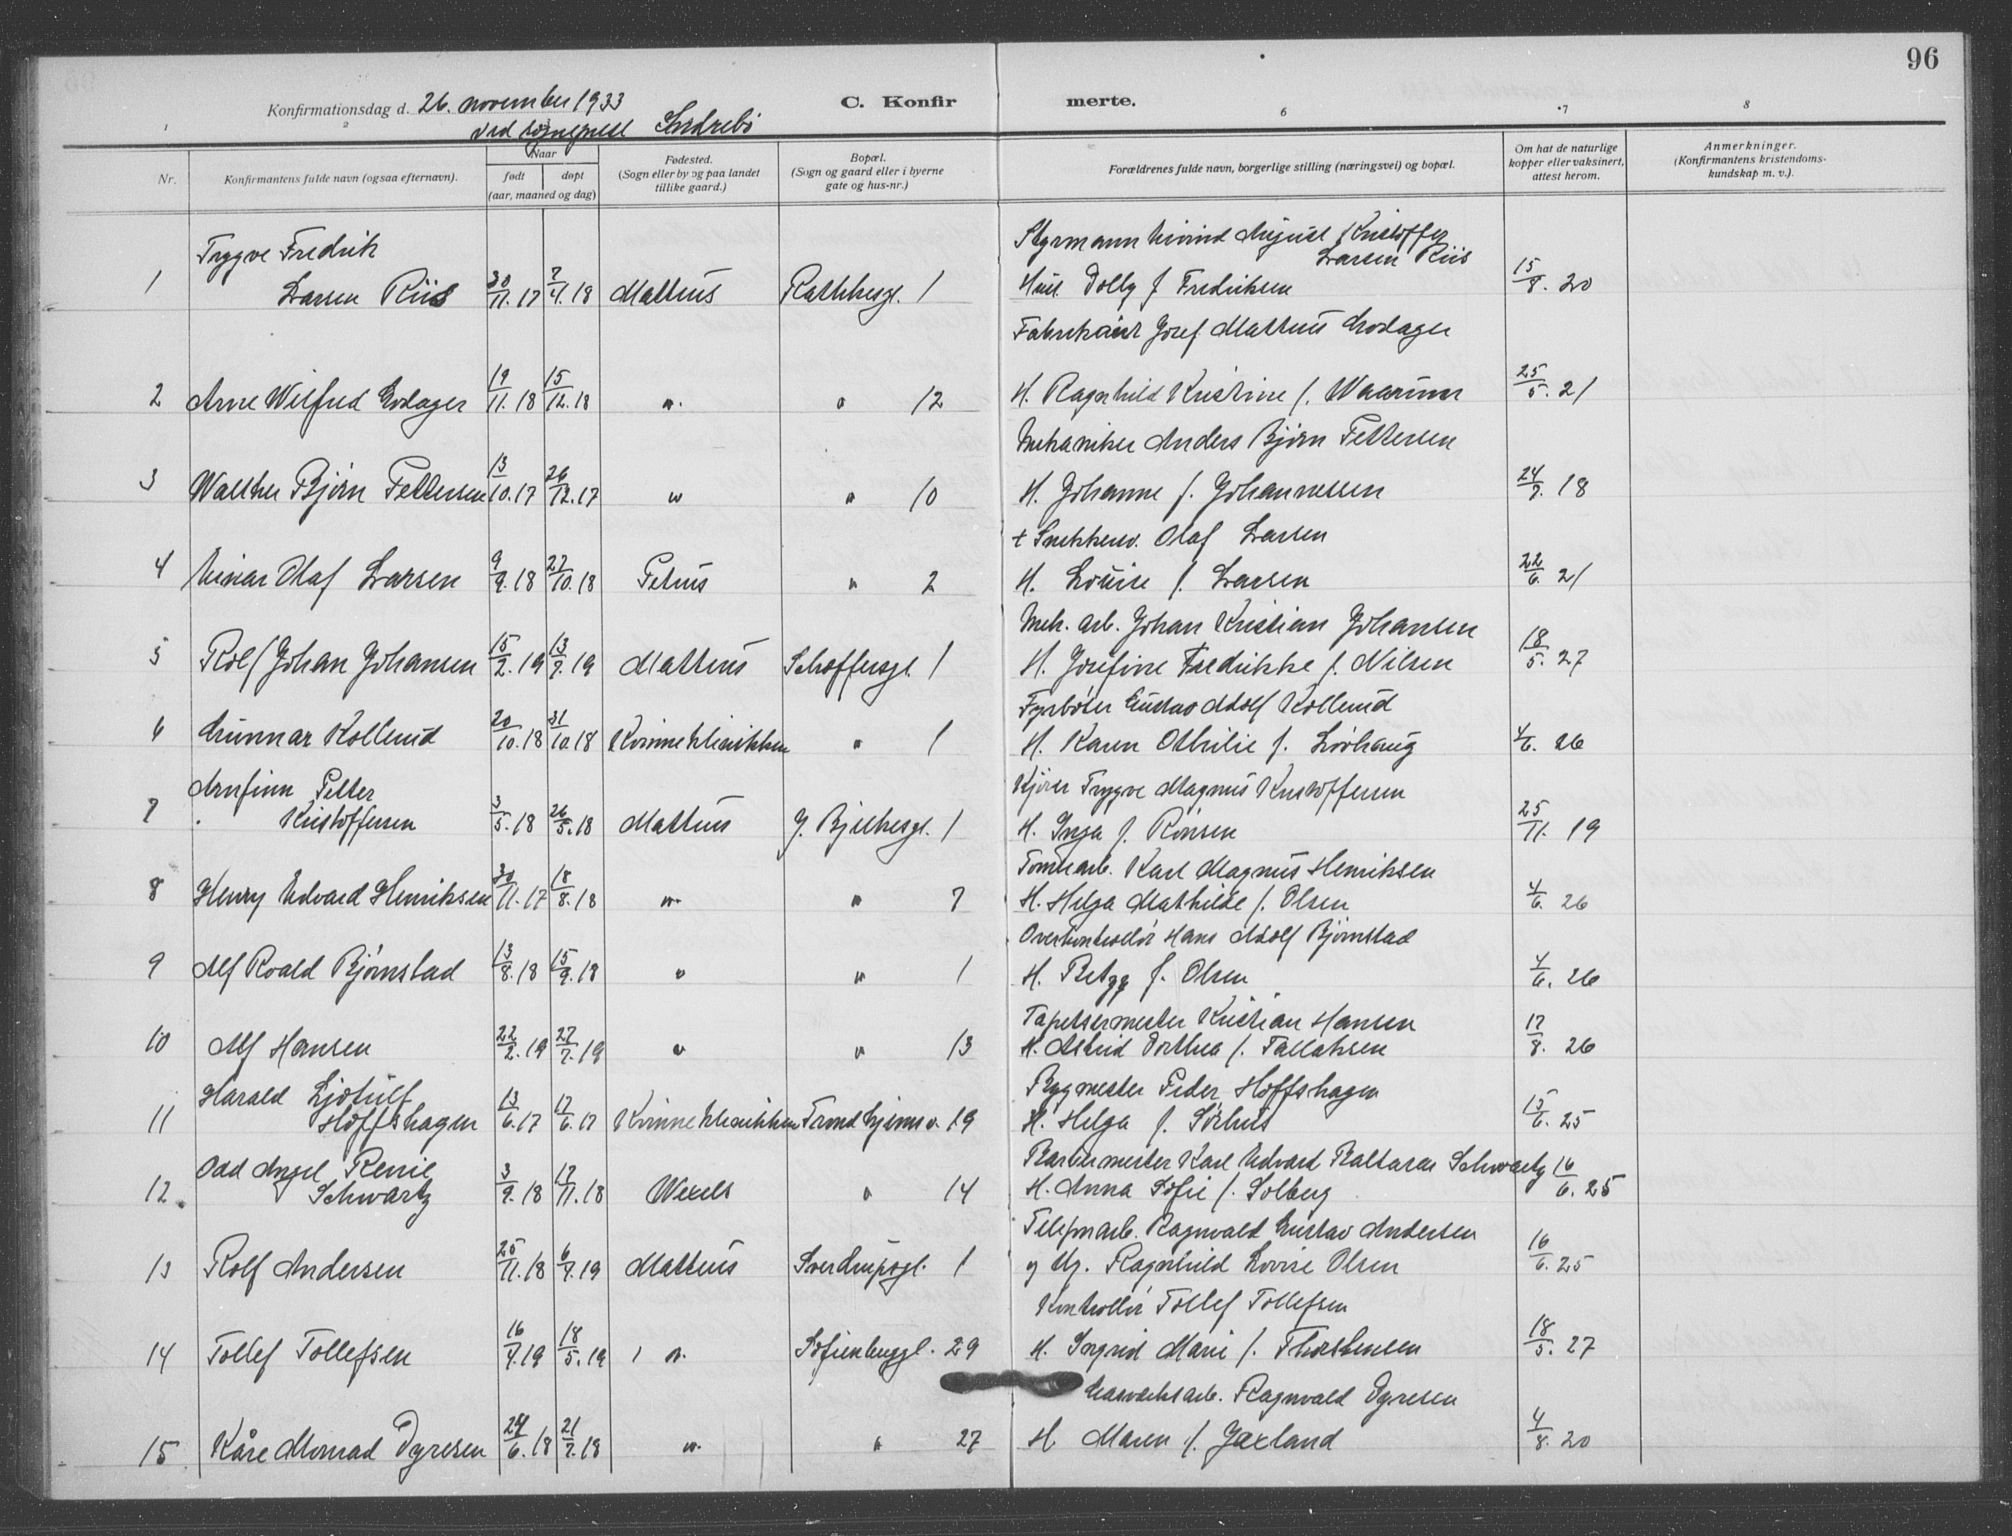 96
Konfirmationsdag d. 26. november 1933
C. Konfirmerte.
ved sogneprest
1 2 3 6 7 8
Nr.
Konfirmantens fulde navn (ogsaa efternavn).
Naar
født døpt
(aar, maaned og dag)
Fødested.
(Sogn eller by og paa landet
tillike gaard.)
Bopæl.
(Sogn og gaard eller i byerne
gate og hus-nr.)
Forældrenes fulde navn, borgerlige stilling (næringsvei) og bopæl.
Om hat de naturlige
kopper eller vaksinert,
attest herom.
Anmerkninger.
(Konfirmantens kristendoms-
kundskap m. v.).
Trygve Fredrik Styrmann Eivind August Kristoffer
Larsen Riis
1 Larsen Riis 30/11.17 7/4.18 Matteus Rathkesgt. 1 Hus. Dolly f Fredriksen 15/8. 20
Fabrikant Josef Matteus Evdager
2 Arne Wilfred Evdager 19/11.18 15/12.18 " " 12 H. Ragnhild Kristine f. Waarum 25/5. 21
Mekaniker Anders Bjørn Pettersen
3 Walther Bjørn Pettersen 13/10.17 26/12.17 " " 10 H. Johanne f. Johannessen 24/7. 18
+ Snekkersv. Olaf Larsen
4 Einar Olaf Larsen 9/9.18 27/10.18 Petrus " 2 H. Louise f. Larsen 22/6. 21
Mek. arb. Johan Kristian Johansen
5 Rolf Johan Johansen 15/2.19 13/7.19 Matteus Schoffersgt. 1 H. Josefine Fredrikke f. Nilsen 18/5. 27
Fyrbøter Gustav Adolf Kollerud
6 Gunnar Kollerud 20/10.18 31/10.18 Kvinneklinikken " 1 H. Karen Othilie f. Løvhaug 4/6. 26
Arnfinn Petter Kjører Trygve Magnus Kristoffersen
7 Kristoffersen 3/5.18 26/5.18 Matteus J. Bjelkesgt. 1 H. Inga f. Rönsen 25/11. 19
Tomtearb. Karl Magnus Henriksen
8 Henry Edvard Henriksen 30/11.17 18/8.18 " " 7 H. Helga Mathilde f. Olsen 4/6. 26
Overkontrollør Hans Adolf Bjørnstad
9 Alf Roald Bjørnstad 13/8.18 15/9.18 " " 1 H. Betzy f. Olsen 4/6. 26
Tapetsermester Kristian Hansen
10 Alf Hansen 22/2.19 27/7.19 " " 13 H. Astrid Dorthea f. Tallaksen 17/8. 26
Harald Ljotulf Bygmester Peder Hoffshagen
11 Hoffshagen 13/6.17 17/6.17 Kvinneklinikken Trondhjemsv. 19 H. Helga f. Sörhus 15/6. 25
Odd Angel René Barbermester Karl Edvard Baltasar Schwartz
12 Schwartz 3/9.18 17/11.18 Wexels " 14 H. Anna Sofie f. Solberg 16/6. 25
Telefonarb. Ragnvald Gustav Andersen
13 Rolf Andersen 25/11.18 6/7.19 Matteus Sverdrupsgt. 1 og Ug. Ragnhild Lovise Olsen 16/6. 25
Kontrollör Tollef Tollefsen
14 Tollef Tollefsen 16/4.19 18/5.19 " Sofienberggt. 29 H. Ingrid Marie f. Thorstensen 18/5. 27
Gasverksarb. Ragnvald Dyresen
15 Kåre Monrad Dyresen 24/6.18 21/7.18 " " 27 H. Maren f. Jaxland 4/8. 20